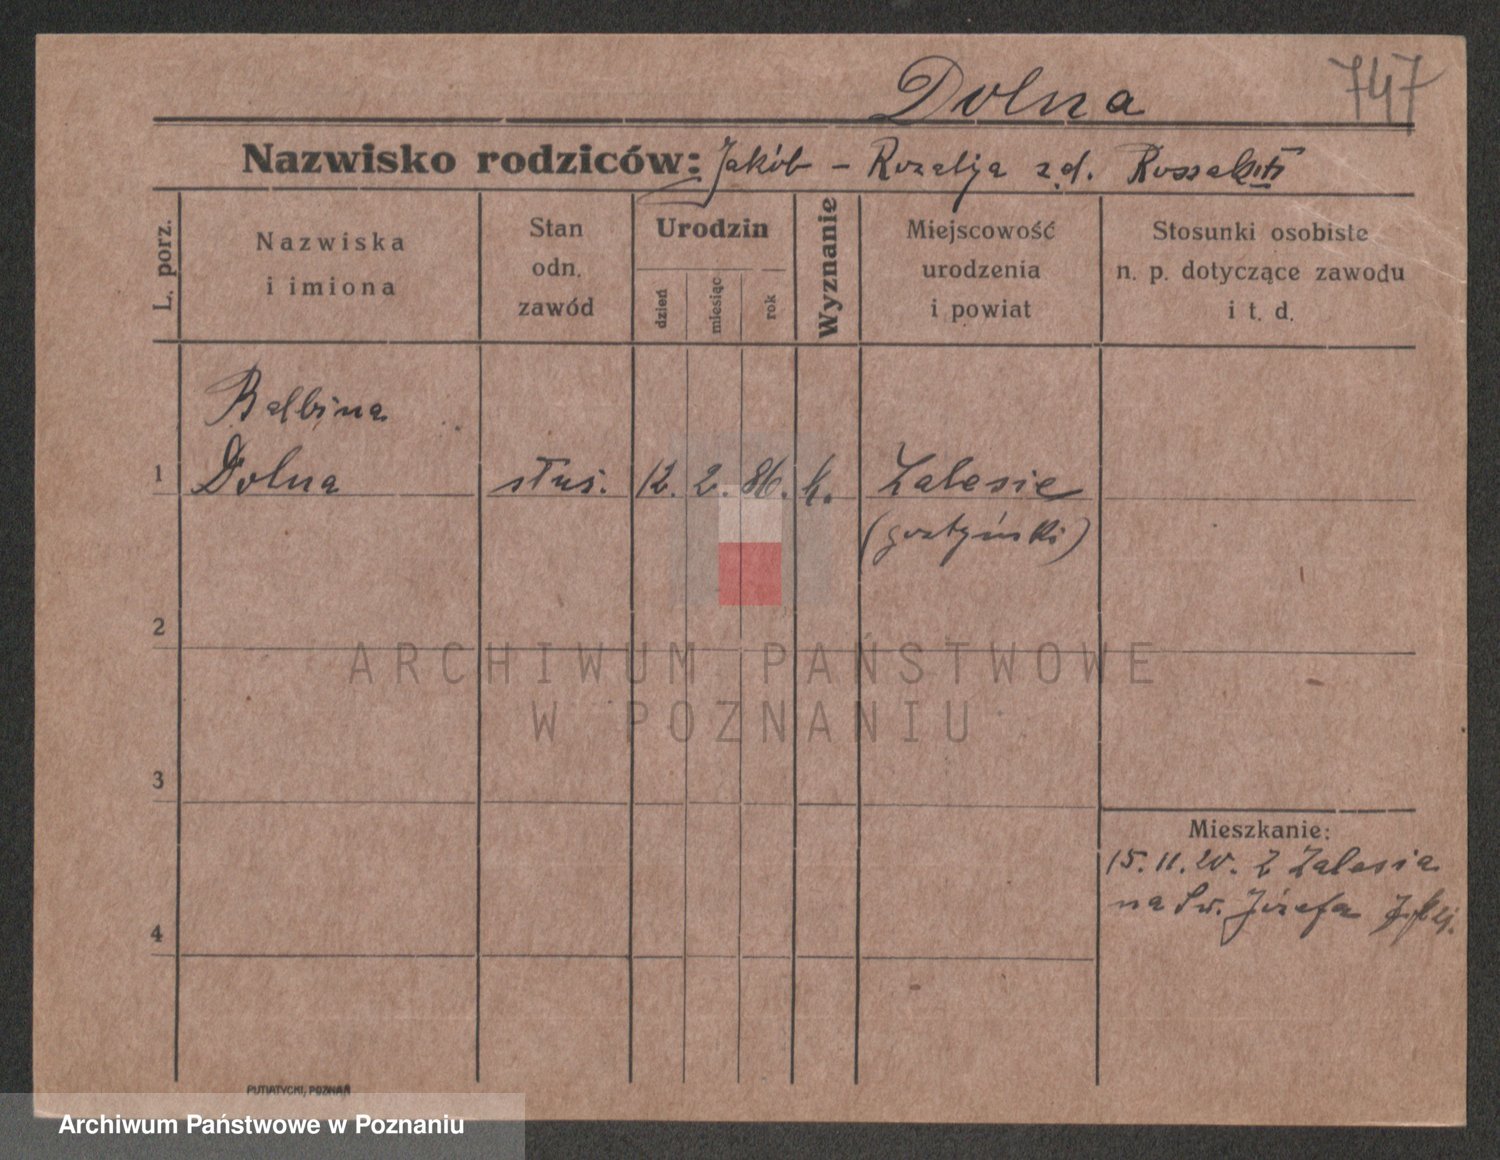 Dolna 747
Nazwisko rodziców: Jakób - Rozalja z d.
L. porz.
Nazwiska
i imiona
Stan
odn.
zawód
Urodzin
dzień
miesiąc
rok
Wyznanie
Miejscowość
urodzenia
i powiat
Stosunki osobiste
n. p. dotyczące zawodu
i t. d.
Balbina
1 Dolna służ. 12. 2. 86. k. Zalesie
(gostyński)
2
3
4
Mieszkanie:
15.11.20. z Zalesia
na Św. Józefa
PUTIATYCKI, POZNAŃ
ARCHIWUM PAŃSTWOWE
W POZNANIU
Archiwum Państwowe w Poznaniu